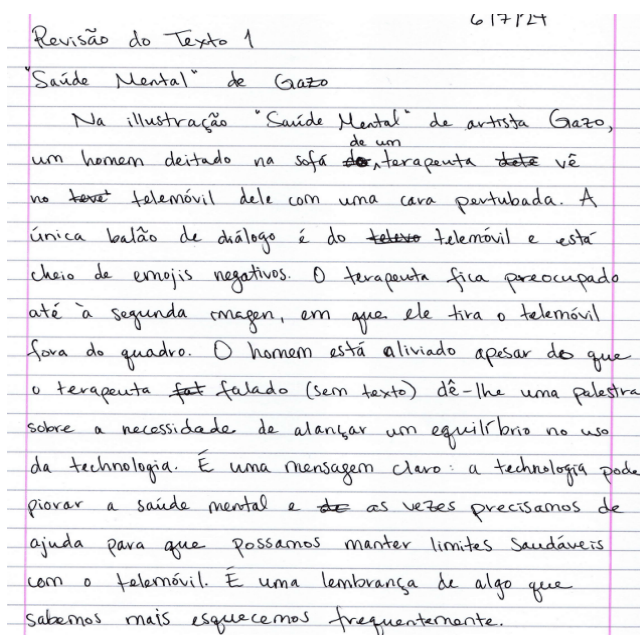 6/7/24
Revisão do Texto 1
"Saúde Mental" de Gazo
Na illustração "Saúde Mental" de artista Gazo,
um homem deitado na sofá de um terapeuta vê
no telemóvil dele com uma cara pertubada. A
única balão de diálogo é do telemóvil e está
cheio de emojis negativos. O terapeuta fica preocupado
até à segunda imagen, em que ele tira o telemóvil
fora do quadro. O homem está aliviado apesar do que
o terapeuta falado (sem texto) dê-lhe uma palestra
sobre a necessidade de alançar um equilíbrio no uso
da technologia. É uma mensagem claro: a technologia pode
piorar a saúde mental e as vezes precisamos de
ajuda para que possamos manter limites saudáveis
com o telemóvil. É uma lembrança de algo que
sabemos mais esquecemos frequentemente.